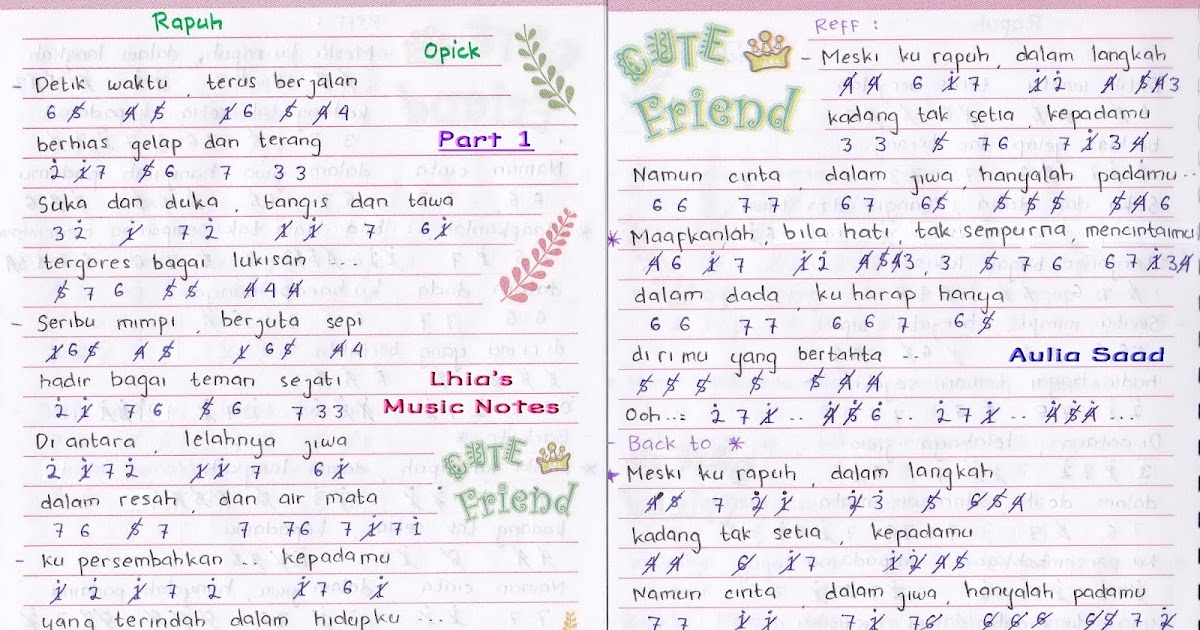 Rapuh
Opick
- Detik waktu, terus berjalan
6 5 4 5 1 6 5 4 4
berhias gelap dan terang
Part 1
2 1 7 5 6 7 3 3
Suka dan duka, tangis dan tawa
3 2 1 7 2 1 1 7 6 1
tergores bagai lukisan ...
5 7 6 5 5 4 4 4
- Seribu mimpi berjuta sepi
1 6 5 4 5 1 6 5 4 4
hadir bagai teman sejati
Lhia's
Music Notes
2 1 7 6 5 6 7 3 3
Di antara, lelahnya jiwa
2 1 7 2 1 1 7 6 1
CUTE
Friend
dalam resah, dan air mata
7 6 5 7 7 7 6 7 1 7 1
- ku persembahkan .. kepadamu
1 2 1 7 2 1 7 6 1
yang terindah dalam hidupku ...
CUTE
Friend
Reff :
- Meski ku rapuh, dalam langkah
4 4 6 1 7 1 2 4 5 4 3
kadang tak setia, kepadamu
3 3 5 7 6 7 1 3 4
Namun cinta, dalam jiwa, hanyalah padamu ..
6 6 7 7 6 7 6 5 5 5 5 5 4 6
* Maafkanlah, bila hati, tak sempurna, mencintaimu
4 6 1 7 1 2 4 5 4 3, 3 5 7 6 6 7 1 3 4
dalam dada ku harap hanya
6 6 7 7 6 6 7 6 5
dirimu yang bertahta ..
Aulia Saad
5 5 5 5 5 4 4
Ooh ..: 2 7 1 .. 4 5 6 .. 2 7 1 .. 4 5 4 ...
- Back to *
* Meski ku rapuh, dalam langkah
4 5 7 2 1 2 3 5 6 5 4
kadang tak setia kepadamu
4 4 6 1 7 1 2 4 5
Namun cinta, dalam jiwa, hanyalah padamu
7 7 1 1 7 1 7 6 6 6 6 6 5 7 2